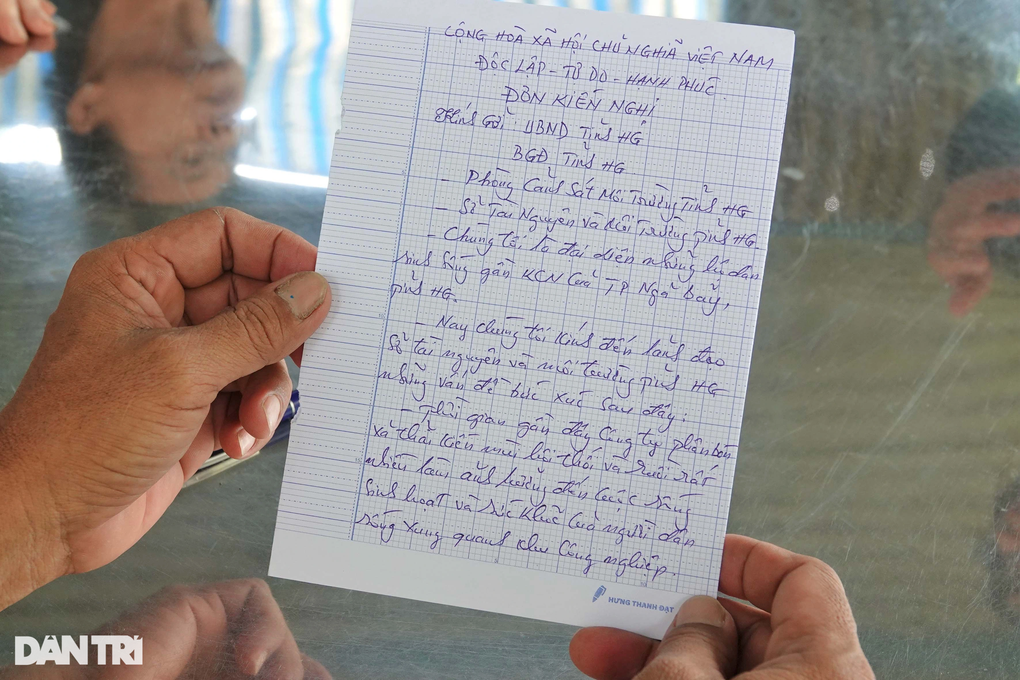 CỘNG HOÀ XÃ HỘI CHỦ NGHĨA VIỆT NAM
ĐỘC LẬP - TỰ DO - HẠNH PHÚC
ĐƠN KIẾN NGHỊ
Kính Gởi: UBND Tỉnh HG
BGĐ Tỉnh HG
- Phòng Cảnh Sát Môi Trường Tỉnh HG
- Sở Tài Nguyên và Môi Trường tỉnh HG
- Chúng tôi là đại diện những hộ dân
sinh sống gần KCN Của TP Ngã bảy,
tỉnh HG.
- Nay chúng tôi kính đến lãnh đạo
Sở tài nguyên và môi trường tỉnh HG
những vấn đề bức xúc sau đây:
- Thời gian gần đây Công ty phân bón
xả thải kiến mùi hôi thối và ruồi rất
nhiều làm ảnh hưởng đến cuộc sống
sinh hoạt và sức khoẻ của người dân
sống xung quanh khu công nghiệp.
HƯNG THÀNH ĐẠT
DÂN TRÍ